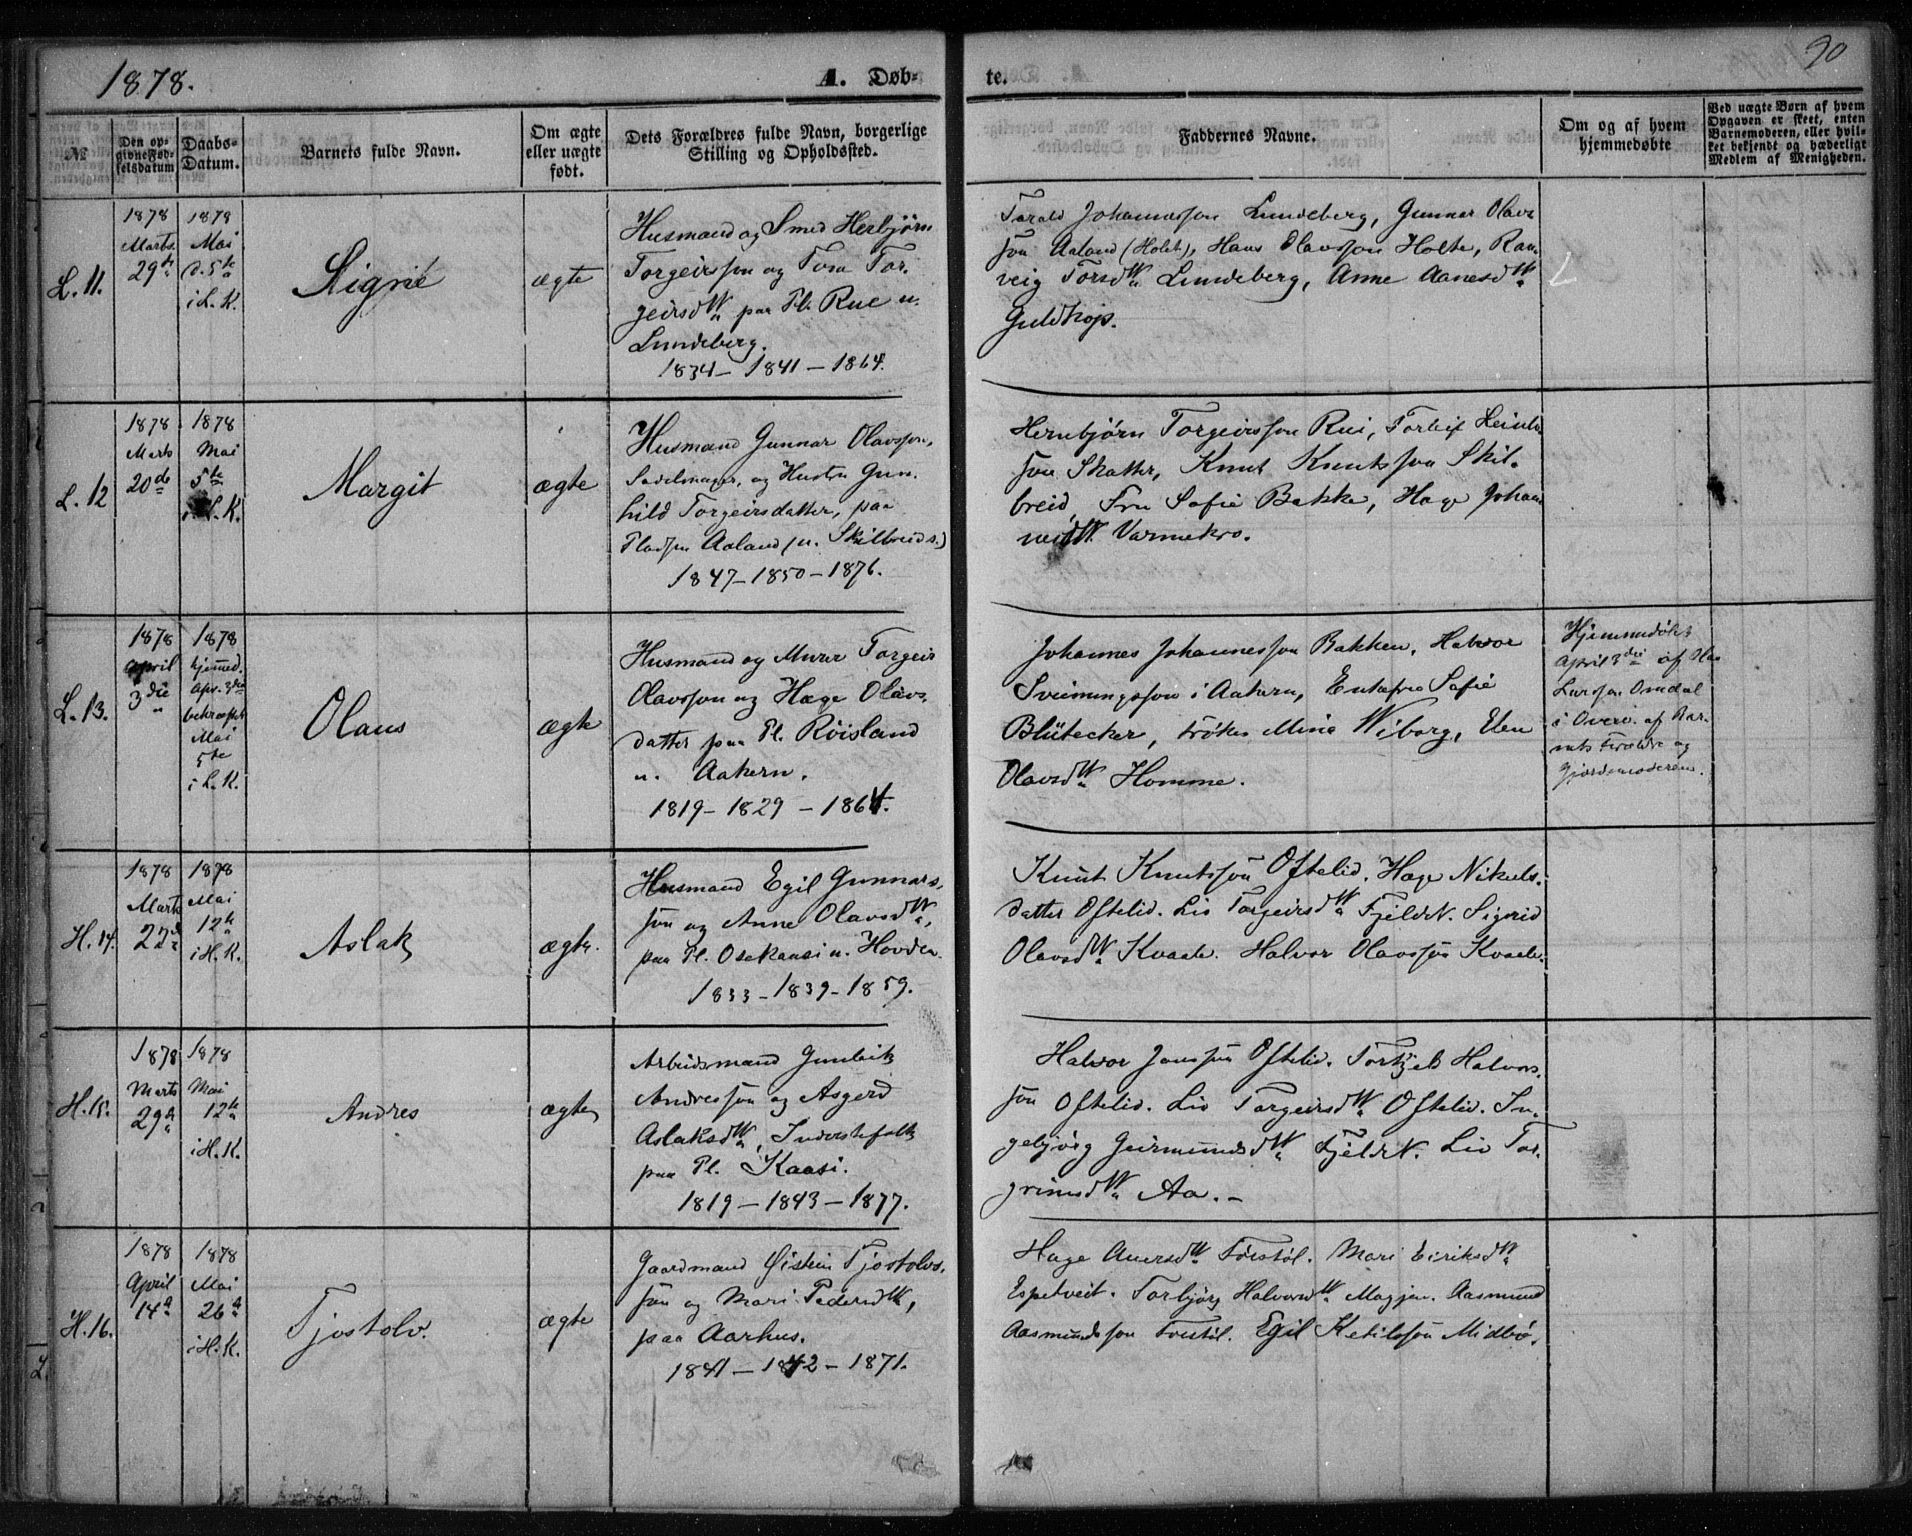 1878.
A. Døb-
te.
90
№
Den op-
givne Fød-
selsdatum
Daabs-
Datum.
Barnets fulde Navn.
Om ægte
eller uægte
født.
Dets Forældres fulde Navn, borgerlige
Stilling og Opholdssted.
Faddernes Navne.
Om og af hvem
hjemmedøbte
Ved uægte Børn af hvem
Opgaven er skeet, enten
Barnemoderen, eller hvil-
ket bekjendt og hæderligt
Medlem af Menigheden.
L. 11.
1878
Marts
29de
1878
Mai
d. 5te
i L. K.
Signe
ægte
Husmand og Smed Herbjørn
Torgeirsson og Tora Tor-
geirsdtr paa Pl. Rue u.
Lundeberg.
1834 – 1841 – 1864.
Johannesson Lundeberg, Gunnar Olavs-
son Aaland (Holet), Hans Olavsson Holte, Ran-
veig Torsdtr Lundeberg, Anne Aanesdtr
L. 12
1878
Marts
20de
1878
Mai
5te
i L. K.
Margit
ægte
Husmand Gunnar Olavsson,
Sadelmager, og Hustru Gun-
hild Torgeirsdatter, paa
Pladsen Aaland (u. Skilbreid.)
1847 – 1850 – 1876.
Herbjørn Torgeirsson Rui,
son Skatter, Knut Knutsson Skil-
breid, Fru Sofie Bakke, Hæge Johan-
nesdtr Varmekro.
L. 13.
1878
April
3die
1878
hjemmed.
Apr. 3die
bekræftet
Mai
5te
i L. K.
Olaus
ægte
Husmand og Murer Torgeir
Olavsson og Hæge Olavs-
datter paa Pl. Röisland
u. Aakern.
1819 – 1829 – 1864.
Johannes Johannesson Bakken, Halvor
Sveinungsson i Aakern, Sofie
Blütecker, frøken Mina Wiborg, Elen
Olavsdtr Homme.
Hjemmedøbt
April 3die af
Larsen Omdal
i Overv. af Bar-
nets Forældre og
Gjordemoderen.
H. 14.
1878
Marts
22de
1878
Mai
12te
i H. K.
Aslak
ægte.
Husmand Egil Gunnars-
son og Anne Olavsdtr,
paa Pl. Osekaasi u. Hovden.
1833 – 1839 – 1859.
Knut Knutsson Oftelid. Hæge Nikuls-
datter Oftelid. Liv Torgeirsdtr Fjeldst. Sigrid
Olavsdtr Kvaale. Halvor Olavsson Kvaale.
H. 15.
1878
Marts
29de
1878
Mai
12te
i H. K.
Andres
ægte
Arbeidsmand Gunleik
Andresson og Asgerd
Aslaksdtr, Inderstefolk
paa Pl. Kaasi.
1819 – 1843 – 1877.
Halvor Jonsson Oftelid. Torkjel Halvors-
son Oftelid. Liv Torgeirsdtr Oftelid. In-
gebjörg Geirmundsdtr Fjeldst. Liv Tor-
grimsdtr Aa. –
H. 16.
1878
April
14de
1878
Mai
26de
i H. K.
Tjostolv.
ægte
Gaardmand Øistein Tjostolvs-
son og Mari Pedersdtr,
paa Aarhus.
1841 – 1842 – 1871.
Hæge Aanersdtr Førestöl. Mari Eiriksdtr
Espetveit. Torbjörg Halvorsdtr Maggjen. Aasmund
Aasmundsson Førestöl. Egil Ketilsson Midbø.